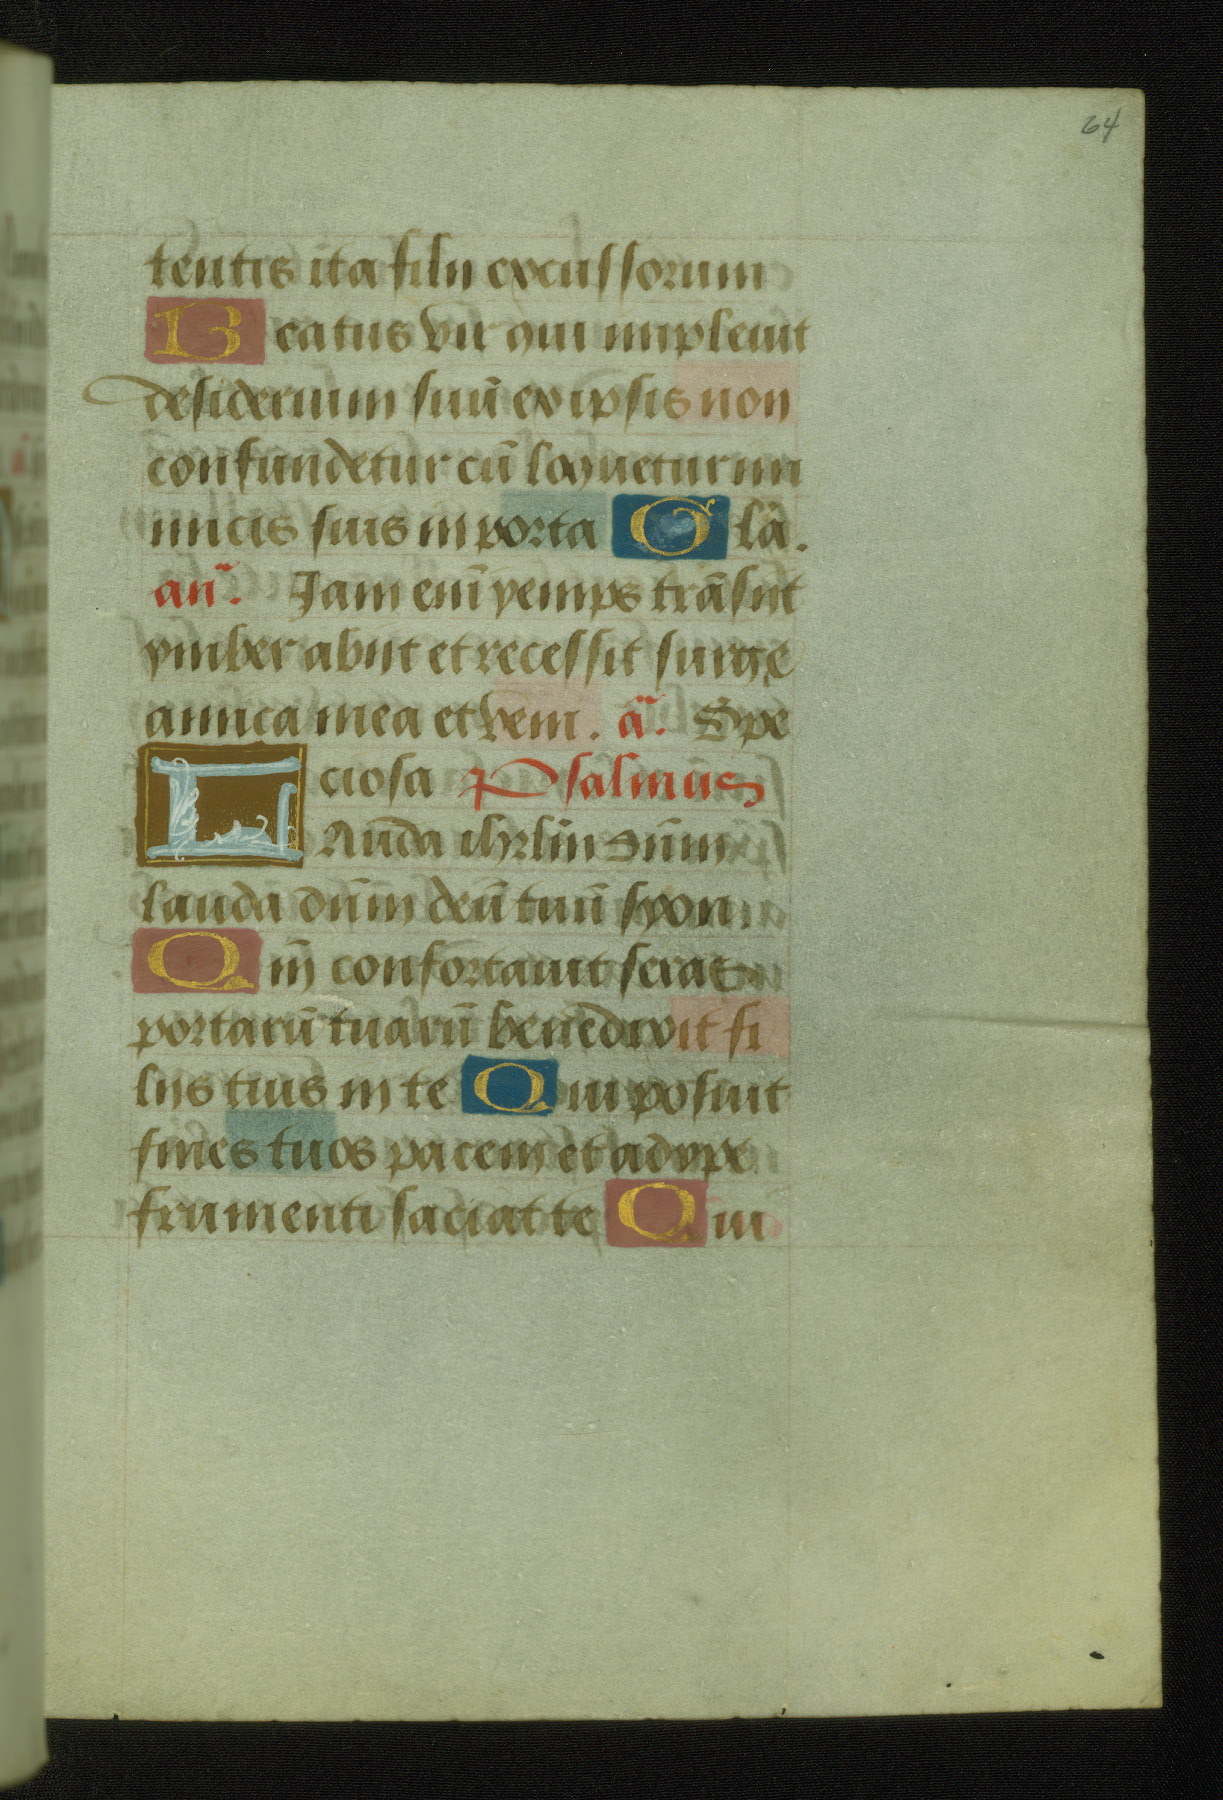 64
tentis ita filii excussorum
Beatus vir qui impleuit
desiderium suū ex ipsis non
confundetur cū loquetur ini
micis suis in porta Glā.
an̄. Jam eni̅ yemps trāsiit
ymber abiit et recessit surge
amica mea et veni. ā. Spe
ciosa Psalmus
LAuda ihrl̄m dn̄m
lauda dn̄m deū tuū syon.
Qm̄ confortauit seras
portarū tuarū benedixit fi
liis tuis in te Qui posuit
fines tuos pacem et adipe
frumenti saciat te Qui